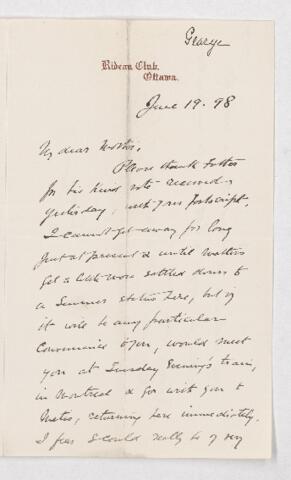 George
Rideau Club,
Ottawa.
June 19. 98
My dear Mother,
Please thank Father
for his kind note received
yesterday, with your Postscript.
I cannot get away for long
just at present & until matters
get a little more settled down to
a Summer status here, but if
it will be any particular
Convenience to you, would meet
you at Tuesday Evening's train,
in Montreal & go with you to
Metis, returning here immediately.
I fear I could really be of very